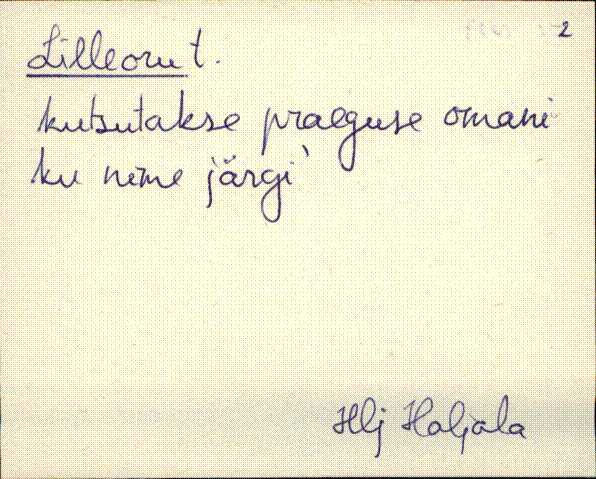 2
Lilleoru t.
kutsutakse praeguse omani
ku nime järgi
Hlj Haljala